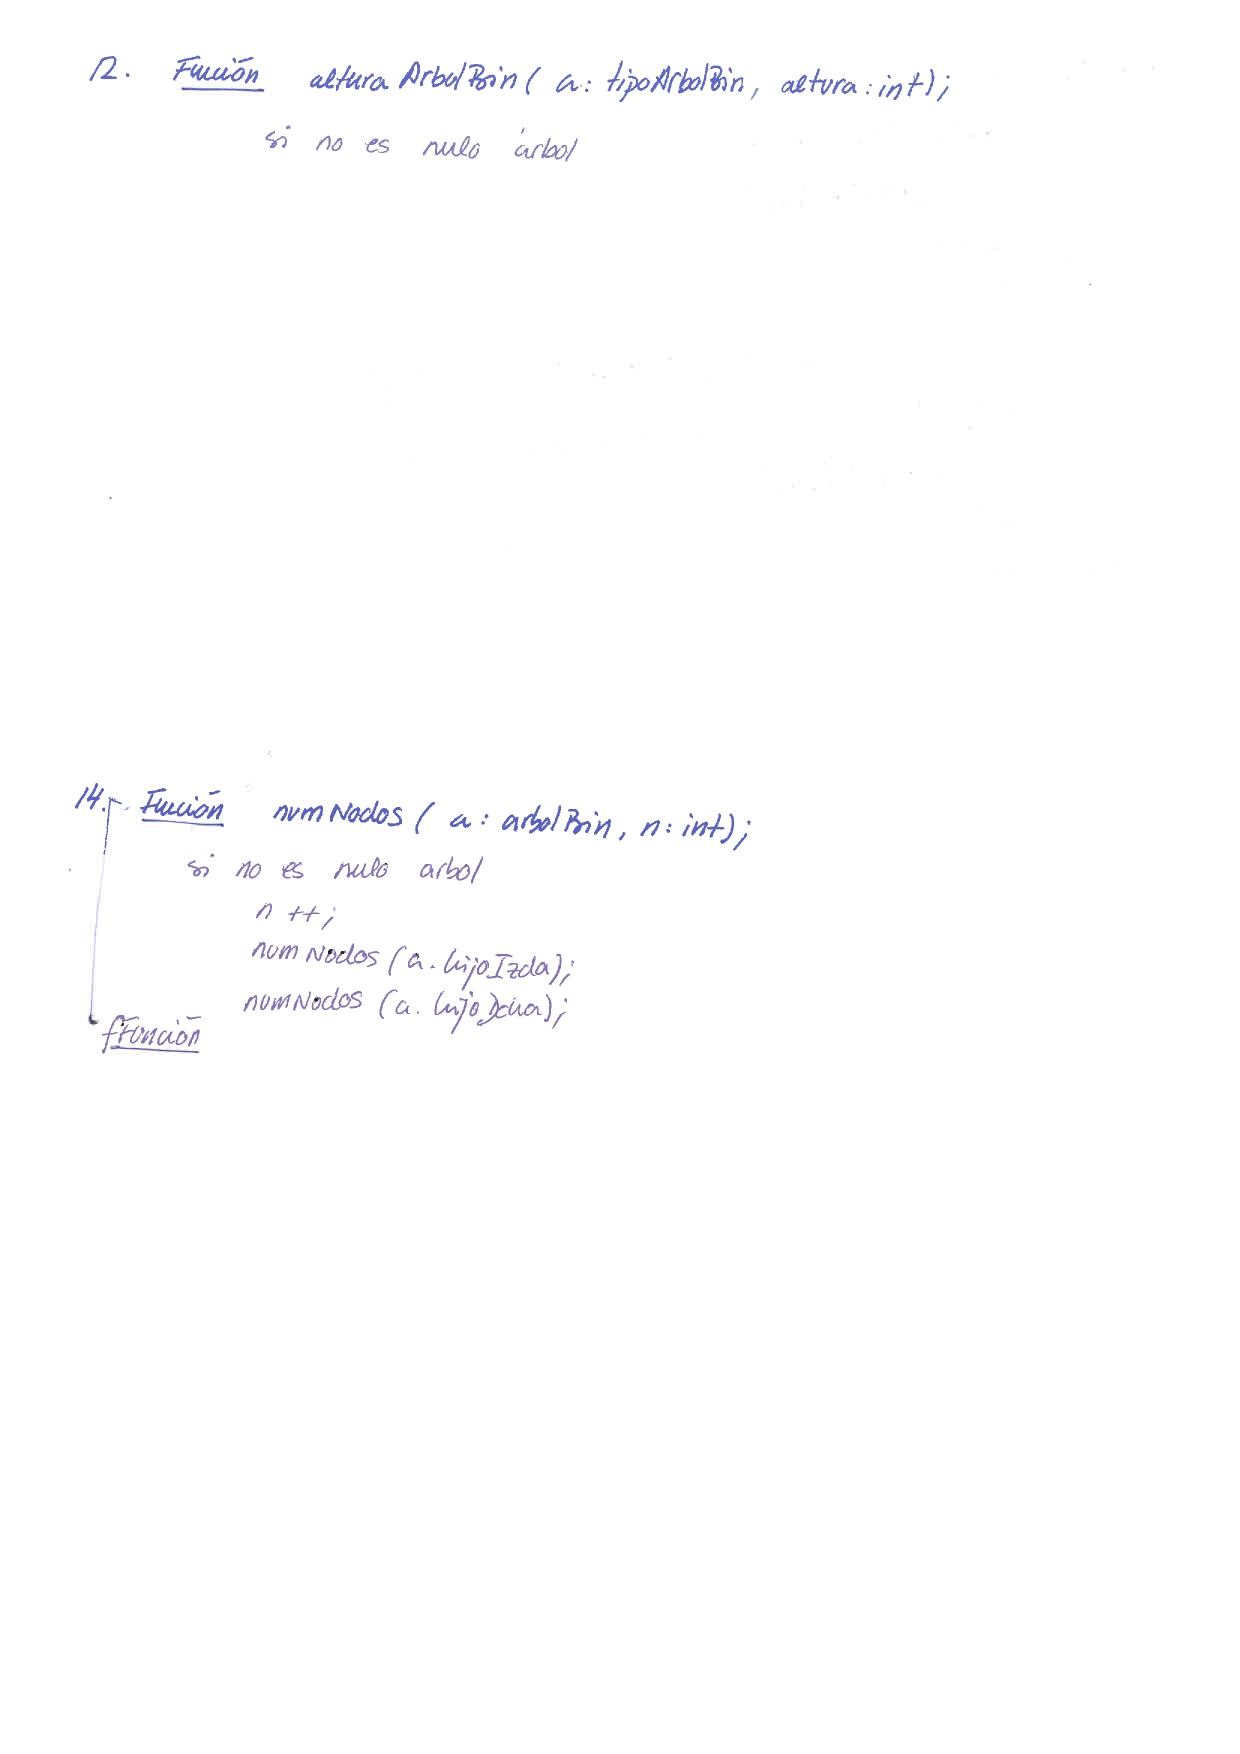 12. Función alturaArbolBin( a: tipoArbolBin, altura: int);
si no es nulo árbol
14. Función numNodos ( a: arbolBin, n: int);
si no es nulo arbol
n ++;
numNodos (a. hijoIzda);
numNodos (a. hijoDcha);
fFunción